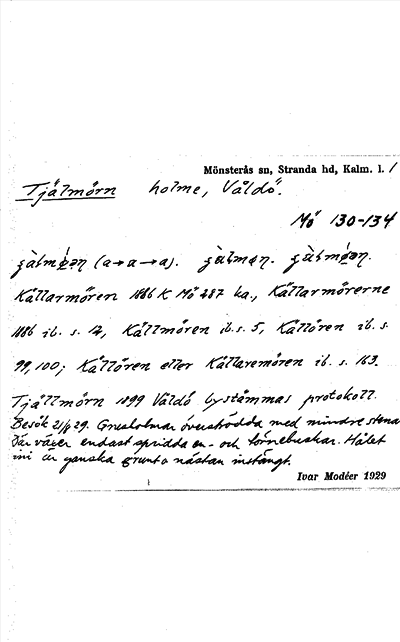 Mönsterås sn, Stranda hd, Kalm. l. 1
Tjälmörn holme, Våldö.
Mö 130-134
Källarmören 1886 K Mö 287 ka., Källarmörerne
1886 ib. s. 12, Källmören ib. s. 5, Källören ib. s.
99, 100; Källören eller Källaremören ib. s. 163.
Tjällmörn 1899 Våldö bystämmas protokoll.
Besök 21/8 29. Grusholmar överströdda med mindre stenar
Där växer endast spridda en- och törnebuskar. Hålet
ini är ganska grunt o nästan instängt.
Ivar Modéer 1929